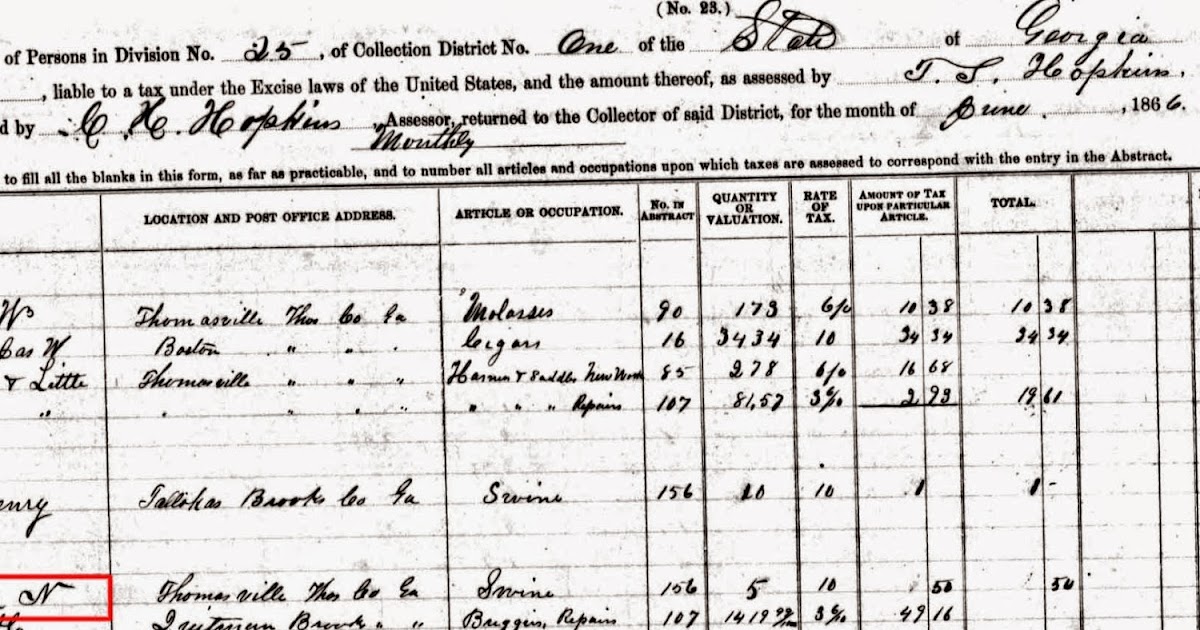 (No. 23.)
of Persons in Division No. 25, of Collection District No. One of the State of Georgia
, liable to a tax under the Excise laws of the United States, and the amount thereof, as assessed by T. S. Hopkins,
d by C. H. Hopkins, Assessor, returned to the Collector of said District, for the month of June, 1866.
Monthly
to fill all the blanks in this form, as far as practicable, and to number all articles and occupations upon which taxes are assessed to correspond with the entry in the Abstract.
LOCATION AND POST OFFICE ADDRESS. ARTICLE OR OCCUPATION. No. IN ABSTRACT QUANTITY OR VALUATION. RATE OF TAX. AMOUNT OF TAX UPON PARTICULAR ARTICLE. TOTAL.
W Thomasville Thos Co Ga Molasses 90 173 6/0 10 38 10 38
Cas W Boston " " . Cigars 16 3434 10 34 34 34 34
& Little Thomasville " " " Harness & Saddles New Work 85 278 6/0 16 68
" " " " " " " " Repairs 107 81,57 3% 2 93 19 61
enry Tallokas Brooks Co Ga Swine 156 10 10 1 1 -
N Thomasville Thos Co Ga Swine 156 5 10 50 50
Quitman Brooks " " Buggies, Repairs 107 1419 3% 49 16